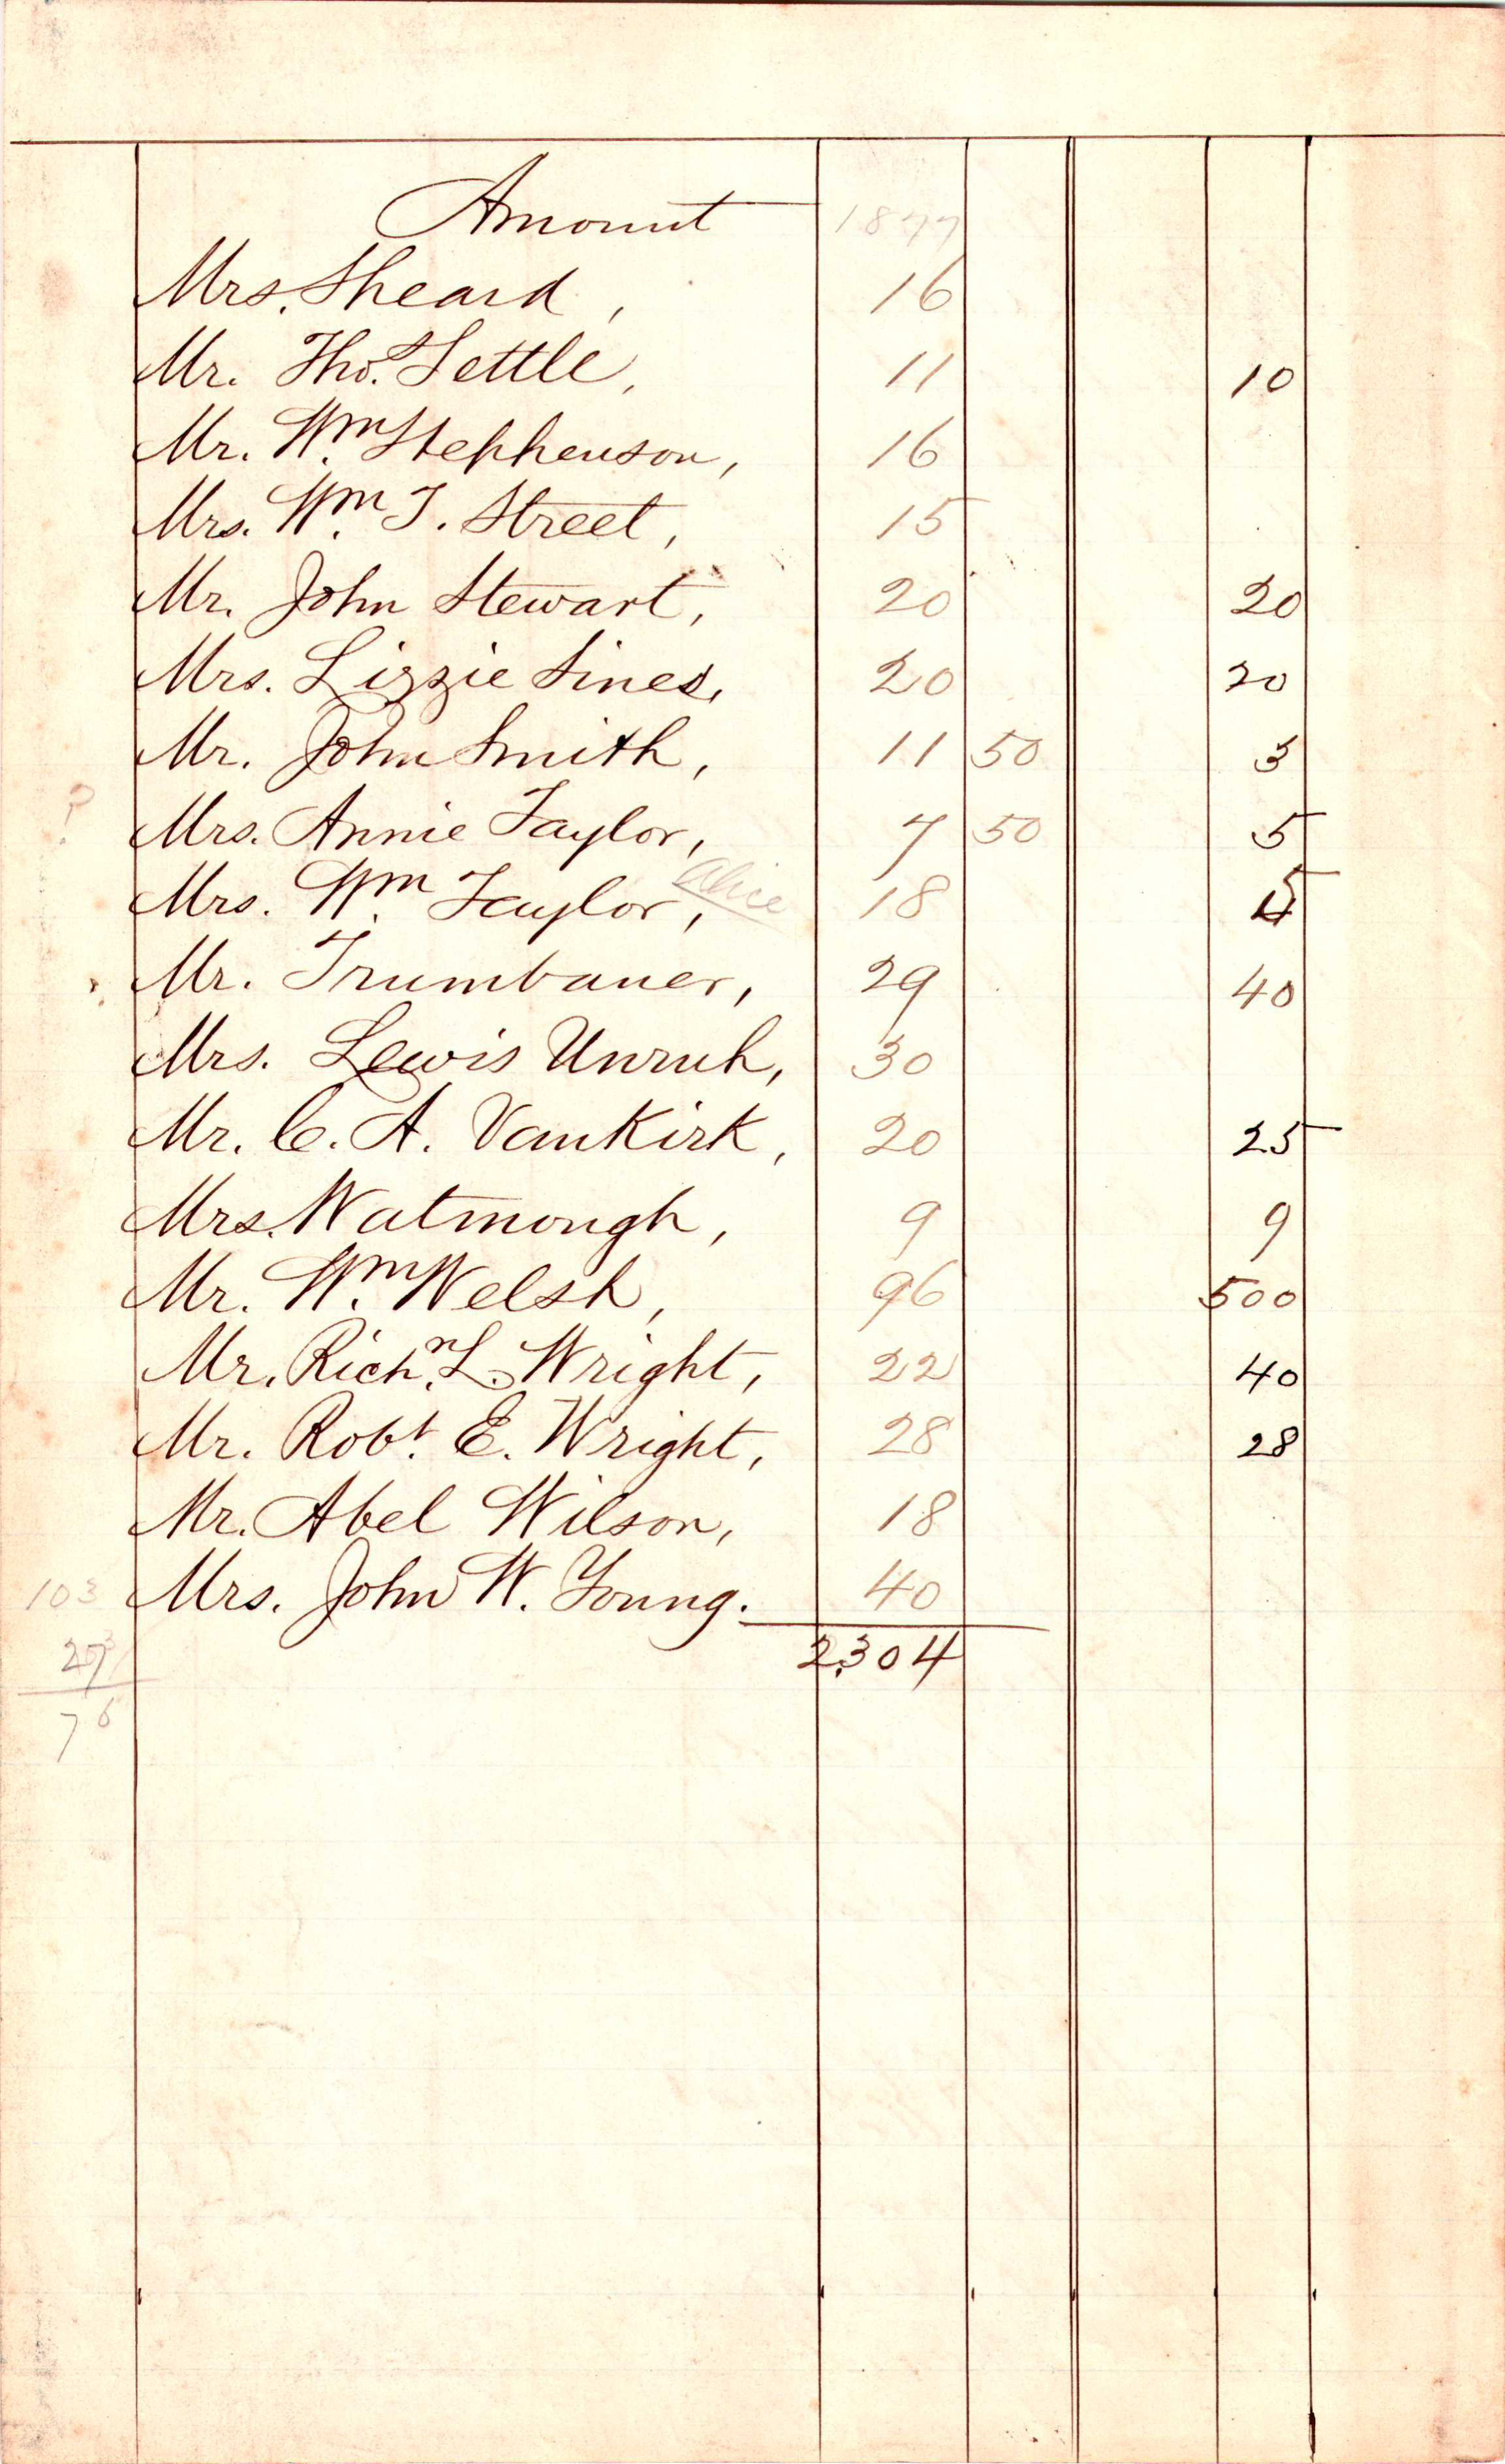 Amount 1877
Mrs. Sheard, 16
Mr. Thos. Settle, 11 10
Mr. Wm. Stephenson, 16
Mrs. Wm. T. Street, 15
Mr. John Stewart, 20 20
Mrs. Lizzie Sines, 20 20
Mr. John Smith, 11 50 3
? Mrs. Annie Taylor, 7 50 5
Mrs. Wm. Taylor, Alice 18 5
Mr. Trumbauer, 29 40
Mrs. Lewis Unruh, 30
Mr. C. A. VanKirk, 20 25
Mrs. Watmough, 9 9
Mr. Wm. Welsh, 96 500
Mr. Richd. L. Wright, 22 40
Mr. Robt. E. Wright, 28 28
Mr. Abel Wilson, 18
103 Mrs. John W. Young. 40
27 2,304
76